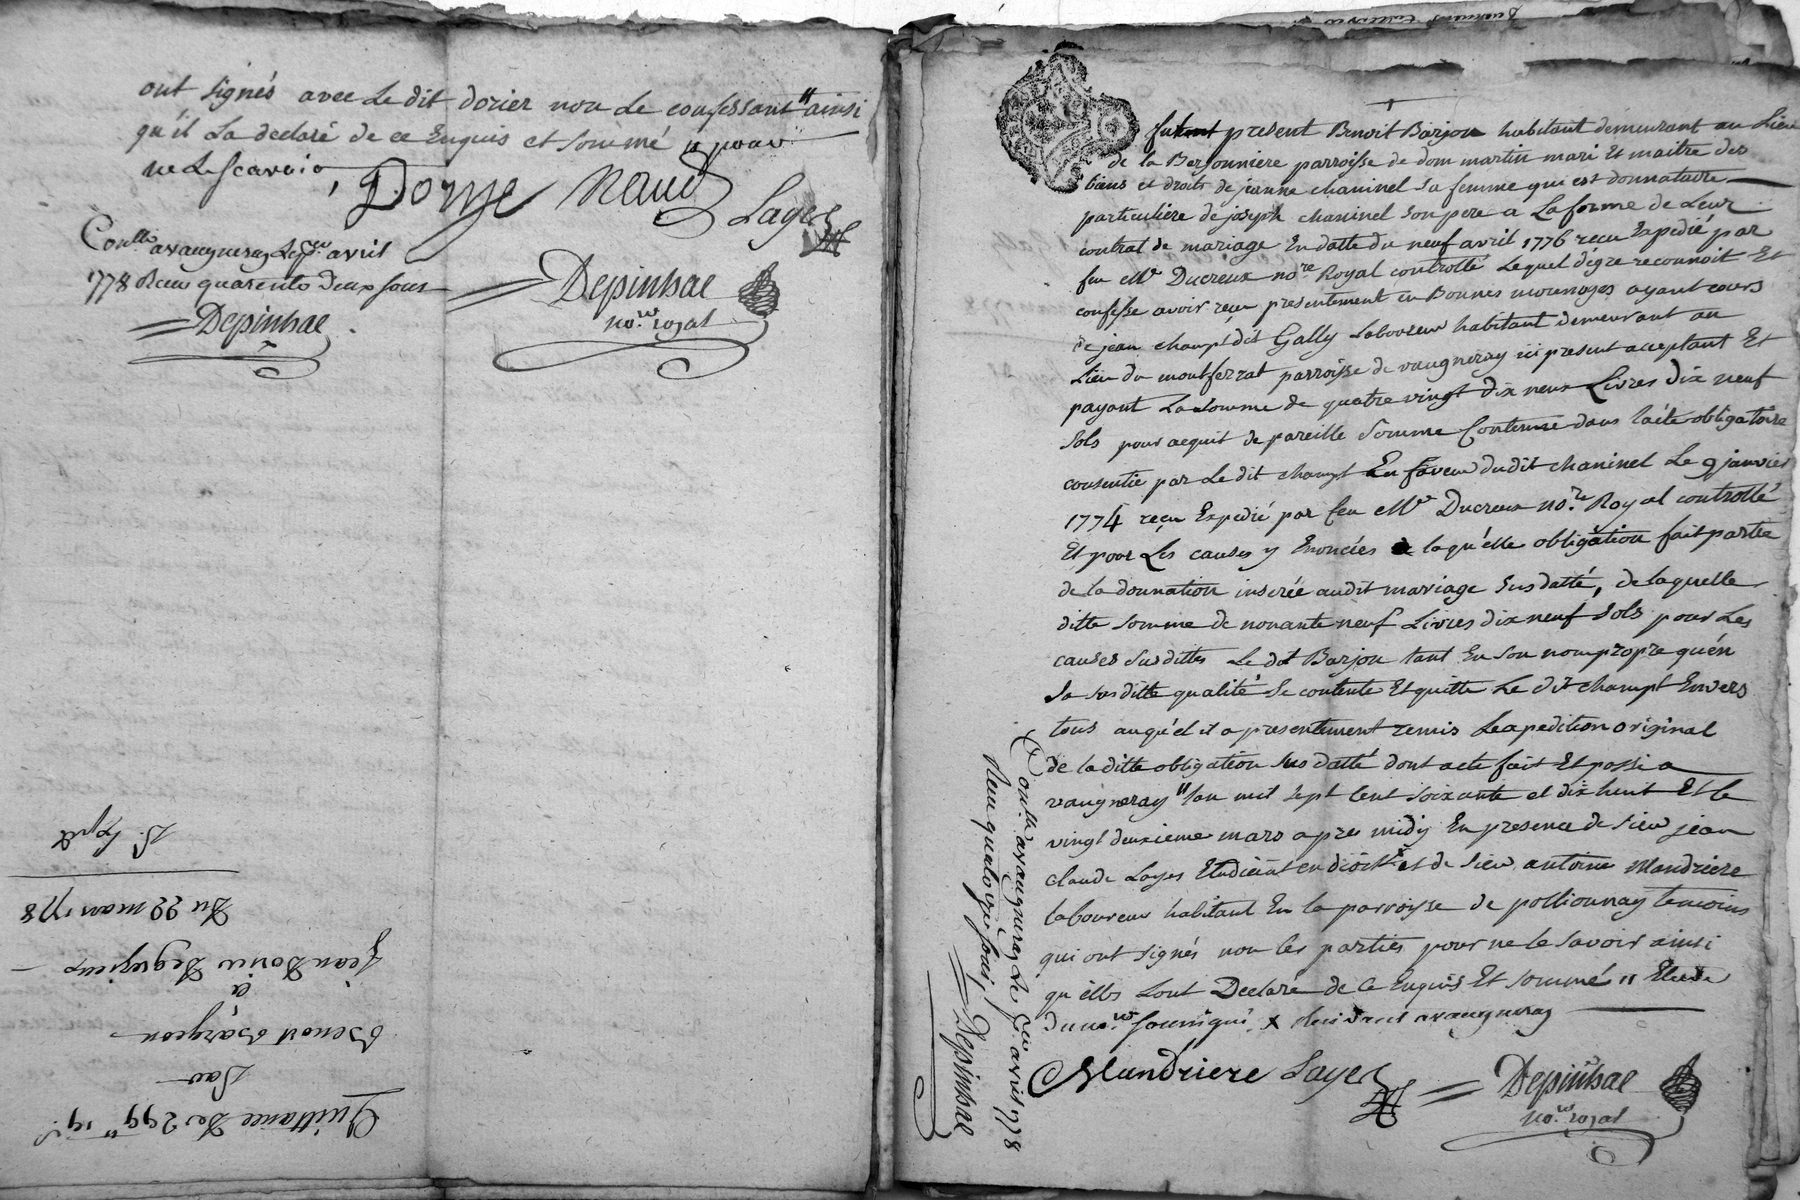 ont signés avec Le dit dorier non Le confessant " ainsi
qu'il La declaré de ce Enquis et sommé
ne Le scavoir,
Dorye Naud Layes
Conllé a vaugneray Le avril
1778 Recu quarente deux sous
Depinhac
Depinhac
no.re royal
S. Expié
Du 22 mars 1778
Jean Dorier Degrezieu
a
Benoit Bargeon
Par
Quittance De 299 # 19 s
fut present Benoit Barjon habitant demeurant au Lieu
de la Bersonniere parroisse de dom martin mari Et maitre des
biens et droits de jeanne chaninel sa femme qui est donnataire
particuliere de joseph chaninel son pere a La forme de Leur
contrat de mariage En datte du neuf avril 1776 recu Expedié par
feu Mr Ducreux no.re Royal controllé Lequel de gre reconnoit Et
confesse avoir reçu presentement en Bonnes monnoyes ayant cours
de jean champt dit Gally Laboureur habitant demeurant au
Lieu du montferrat parroisse de vaugneray ici present acceptant Et
payant La somme de quatre vingt dix neuf Livres dix neuf
sols pour acquit de pareille somme Contenue dans l'acte obligatoire
consentie par Le dit champt En faveur dudit chaninel Le 9 janvier
1774 reçu Expedié par feu Mr Ducreux no.re Royal controllé
Et pour Les causes y Enoncées laqu'elle obligation fait partie
de la donnation inserée audit mariage sus datté, de laquelle
ditte somme de nonante neuf Livres dix neuf sols pour Les
causes susdittes Le dit Barjon tant En son nom propre qu'en
sa susditte qualité se contente Et quitte Le dit champt Envers
tous auqu'el il a presentement remis Leapedition original
de la ditte obligation sus datté dont acte fait Et passé a
vaugneray " lan mil sept cent soixante et dix huit Et le
vingt deuxieme mars apres midy En presence de sieur jean
claude Layes Etudiant en droit et de sieur antoine Mandriere
laboureur habitant En la parroisse de pollionnay temoins
qui ont signés non les parties pour ne le savoir ainsi
qu'elles L'ont Declaré de ce Enquis Et sommé "
du no.re soussigné a vaugneray
Mandriere Layes Depinhac
no.re royal
Conllé a vaugneray Le avril 1778
Recu quatorze sous Depinhac